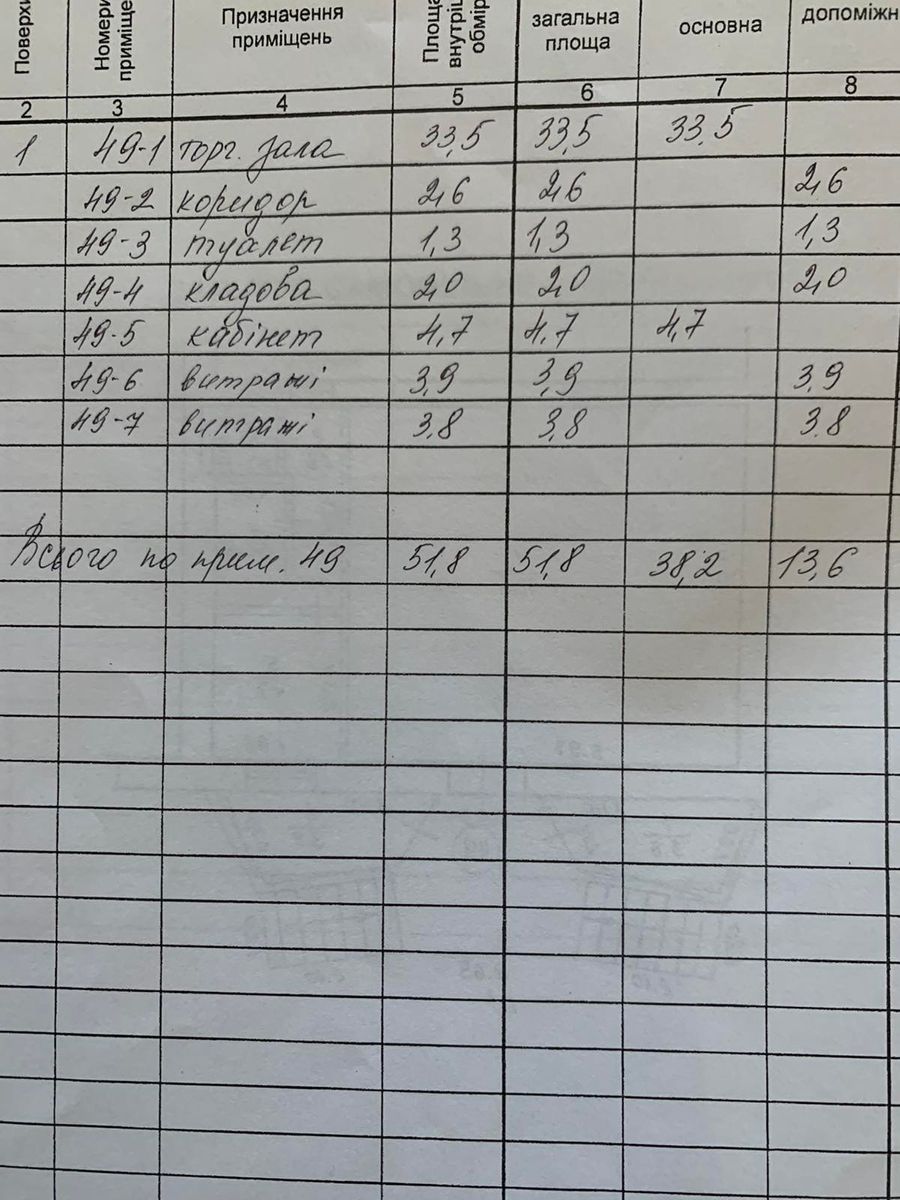 Поверхи Номери приміще Призначення приміщень Площа внутріш обмір загальна площа основна допоміжн
2 3 4 5 6 7 8
1 49-1 торг. зала 33,5 33,5 33,5
49-2 коридор 2,6 2,6 2,6
49-3 туалет 1,3 1,3 1,3
49-4 кладова 2,0 2,0 2,0
49-5 кабінет 4,7 4,7 4,7
49-6 витражі 3,9 3,9 3,9
49-7 витражі 3,8 3,8 3,8
Всього по прим. 49 51,8 51,8 38,2 13,6